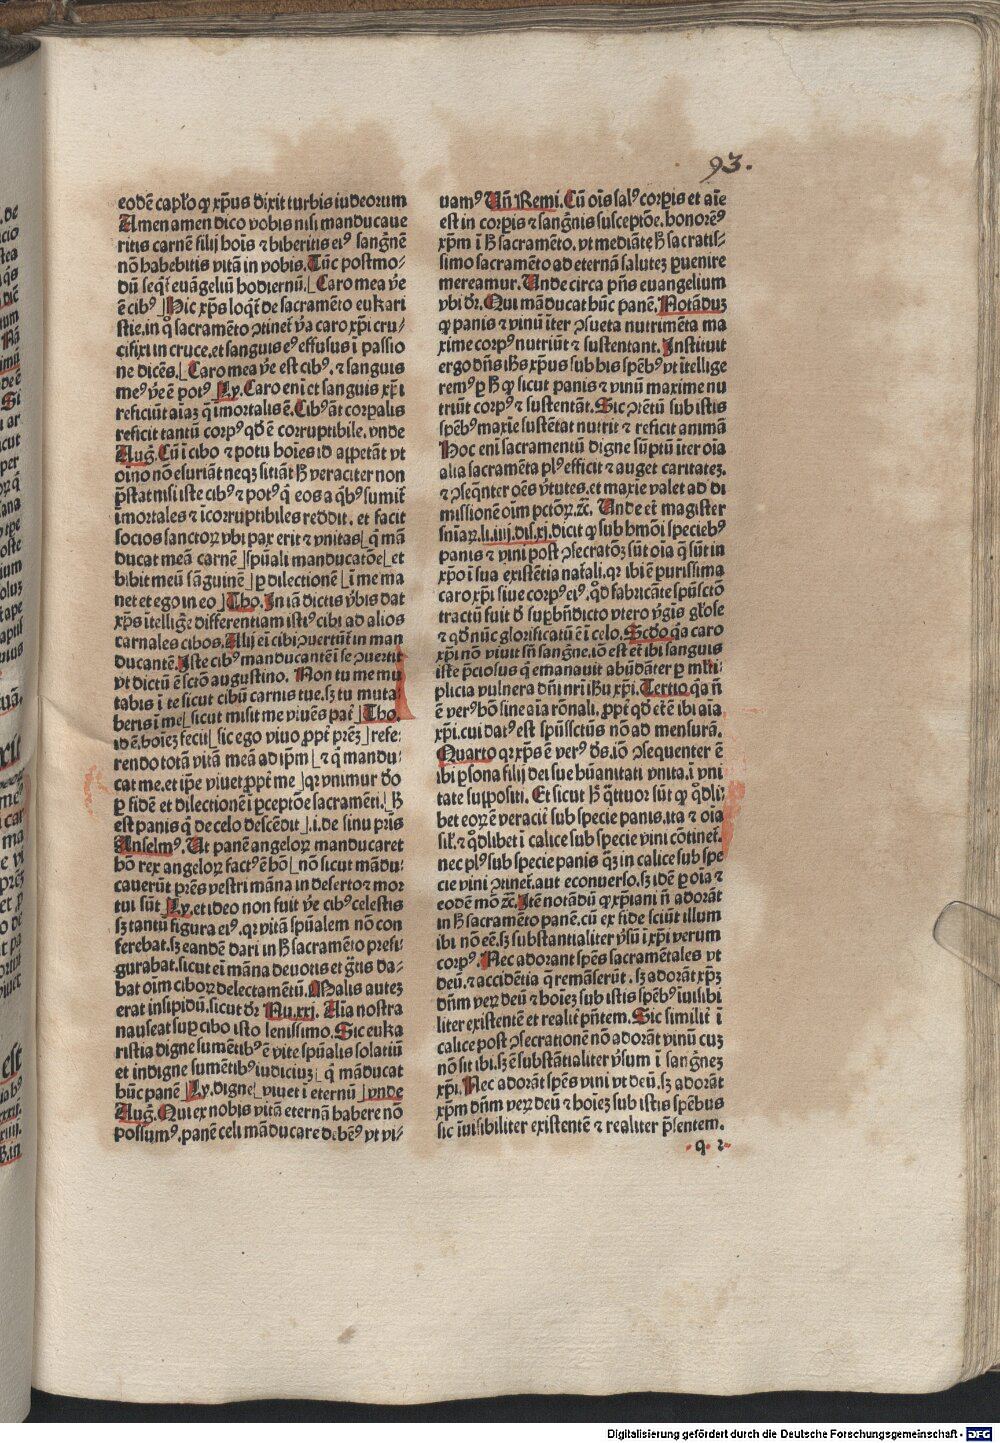 93.
eodē cap̄lo ꝙ xp̄us dixit turbis iudeorum
Amen amen dico vobis nisi manducaue
ritis carnē filij hoīs ⁊ biberitis eiꝰ sangnē
nō habebitis vitā in vobis. Tūc postmo⸗
dū seqt̄ euāgeliū hodiernū. Caro mea ve̅
ē cibꝰ Hic xp̄s loqt̄ de sacramēto eukari
stie. in qͦ sacramēto ꝯtinet̄ v̄a caro xp̄i cru⸗
cifixi in cruce. et sanguis eꝰ effusus ī passio
ne dicēs. Caro mea ve̅ est cibꝰ. ⁊ sanguis
meꝰ ve̅ ē potꝰ Ly. Caro enī et sanguis xp̄i
reficiūt aīaꝫ q̄ imortalis ē. Cibꝰ āt corpalis
reficit tantū corpꝰ qd̄ ē corruptibile. vnde
Aug. Cū ī cibo ⁊ potu hoīes id appetāt vt
oīno nō esuriāt neqꝫ sitiāt ꜧ veraciter non
p̄stat nisi iste cibꝰ ⁊ potꝰ q̄ eos a qͥbꝰ sumit̄
imortales ⁊ īcorruptibiles reddit. et facit
socios sanctoꝝ vbi pax erit ⁊ vnitas q̄ mā
ducat meā carnē spūali manducatōe et
bibit meū sāguinē ꝑ dilectionē ī me ma
net et ego in eo Tho. In iā dictis v̄bis dat
xp̄s ītellige̅ differentiam istiꝰ cibi ad alios
carnales cibos. Alij ei̅ cibi ꝯuertūt̄ in man
ducantē. Iste cibꝰ manducantē ī se ꝯuertit
vt dictū ē sct̄o augustino. Non tu me mu
tabis ī te sicut cibū carnis tue. sꝫ tu muta⸗
beris ī me sicut misit me viuēs pat̄ Tho.
id ē. hoīeꝫ fecit sic ego viuo ꝓpt̄ prēꝫ refe⸗
rendo totā vitā meā ad ip̄m ⁊ q̄ mandu⸗
cat me. et ip̄e viuet ꝓpt̄ me qꝛ vnimur do̅
ꝑ fidē et dilectionē ī ꝑceptōe sacramēti. ꜧ
est panis q̄ de celo descēdit .i. de sinu pr̄is
Anselmꝰ. Ut panē angeloꝝ manducaret
hō rex angeloꝝ factꝰ ē hō nō sicut mādu⸗
cauerūt prēs vestri māna in deserto ⁊ mor
tui sūt Ly. et ideo non fuit ve̅ cibꝰ celestis
sꝫ tantū figura eiꝰ. qꝛ vitā spūalem nō con
ferebat. sꝫ eandē dari in ꜧ sacramēto prefi⸗
gurabat. sicut ei̅ māna deuotis et gͣtis da⸗
bat oīm ciboꝝ delectamētū. Malis auteꝫ
erat insipidū. sicut dꝛ̄ Nu.xxi. Aīa nostra
nauseat suꝑ cibo isto leuissimo. Sic euka
ristia digne sumētibꝰ ē vite spūalis solatiū
et indigne sumētibꝰ iudiciuꝫ q̄ māducat
hūc panē Ly. digne viuet ī eternū vnde
Aug. Qui ex nobis vitā eternā habere nō
possumꝰ. panē celi māducare debēꝰ vt vi⸗
uamꝰ Un̄ Remi. Cū oīs salꝰ corpis et aīe
est in corpis ⁊ sangnis susceptōe. honorēꝰ
xp̄m ī ꜧ sacramēto. vt mediāte ꜧ sacratis⸗
simo sacramēto ad eternā saluteꝫ ꝑuenire
mereamur. Unde circa pn̄s euangelium
vbi dꝛ̄. Qui māducat hūc panē. Notāduꝫ
ꝙ panis ⁊ vinū īter ꝯsueta nutrimēta ma
xime corpꝰ nutriūt ⁊ sustentant. Instituit
ergo dn̄s ih̄s xp̄us sub his spēbꝰ vt ītellige
remꝰ ꝑ ꜧ ꝙ sicut panis ⁊ vinū maxime nu
triūt corpꝰ ⁊ sustentāt. Sic ꝯtētū sub istis
spēbꝰ maxīe sustētat nutrit ⁊ reficit animā
Hoc enī sacramentū digne sūptū īter oīa
alia sacramēta plꝰ efficit ⁊ auget caritateꝫ.
⁊ ꝯseqnter oēs v̄tutes. et maxīe valet ad di
missionē oīm pctōꝝ. ⁊c̄. Unde et̄ magister
sniāꝝ. li.iiij. dis.xj. dicit ꝙ sub hmōi speciebꝰ
panis ⁊ vini post ꝯsecratōꝫ sūt oīa q̄ sūt in
xp̄o ī sua existētia natali. qꝛ ibi ē purissima
caro xp̄i siue corpꝰ eiꝰ. qd̄ fabricāte spūsctō
tractū fuit d̄ suꝑbn̄dicto vtero v̄gis gl̄ose
⁊ qd̄ nūc glorificatū ē ī celo. Scd̄o qꝛ caro
xp̄i nō viuit sn̄ sangne. iō est et̄ ibi sanguis
iste p̄ciosus q̄ emanauit abūdāter ꝑ ml̄ti⸗
plicia vulnera dn̄i nr̄i ih̄u xp̄i. Tertio qꝛ n̄
ē verꝰ hō sine aīa rōnali. ꝓpt̄ qd̄ et̄ ē ibi aīa
xp̄i. cui datꝰ est spūssctūs nō ad mensurā.
Quarto qꝛ xp̄s ē verꝰ ds̄. iō ꝯsequenter ē
ibi ꝑsona filij dei sue hūanitati vnita. ī vni
tate suppositi. Et sicut ꜧ q̄ttuor sūt ꝙ qd̄li⸗
bet eoꝝ ē veracit̄ sub specie panis. ita ⁊ oīa
sil̄r ⁊ qd̄libet ī calice sub specie vini cōtinet̄.
nec plꝰ sub specie panis q̄ꝫ in calice sub spe
cie vini ꝯtinet̄. aut econuerso. sꝫ idē ꝑ oīa ⁊
eodē mō ⁊c̄. Itē notādū ꝙ xp̄iani n̄ adorāt
in ꜧ sacramēto panē. cū ex fide sciūt illum
ibi nō eē. sꝫ substantialiter v̄sū ī xp̄i verum
corpꝰ. Nec adorant spēs sacramētales vt
deū. ⁊ accidētia q̄ remāserūt. sꝫ adorāt xp̄ꝫ
dn̄m veꝝ deū ⁊ hoīeꝫ sub istis spēbꝰ īuisibi
liter existentē et realit̄ pn̄tem. Sic similit̄ ī
calice post ꝯsecrationē nō adorāt vinū cuꝫ
nō sit ibi. sꝫ ē substātialiter v̄sum ī sangneꝫ
xp̄i. Nec adorāt spēs vini vt deū. sꝫ adorāt
xp̄m dn̄m veꝝ deū ⁊ hoīeꝫ sub istis spēbus
sic īuisibiliter existentē ⁊ realiter p̄sentem.
q 2
Digitalisierung gefördert durch die Deutsche Forschungsgemeinschaft - DFG